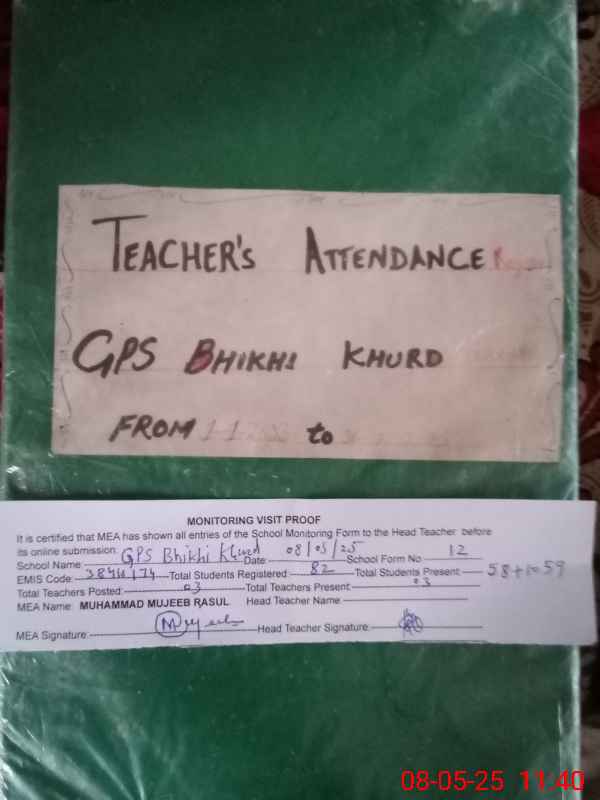 TEACHER'S ATTENDANCE
GPS BHIKHI KHURD
FROM to
MONITORING VISIT PROOF
It is certified that MEA has shown all entries of the School Monitoring Form to the Head Teacher before
its online submission.
School Name: GPS Bhikhi Khurd Date: 08/05/25 School Form No 12
EMIS Code: Total Students Registered: 82 Total Students Present: 58+1=59
Total Teachers Posted: 03 Total Teachers Present: 03
MEA Name: MUHAMMAD MUJEEB RASUL Head Teacher Name:
MEA Signature: Mujeeb Head Teacher Signature:
08-05-25 11:40